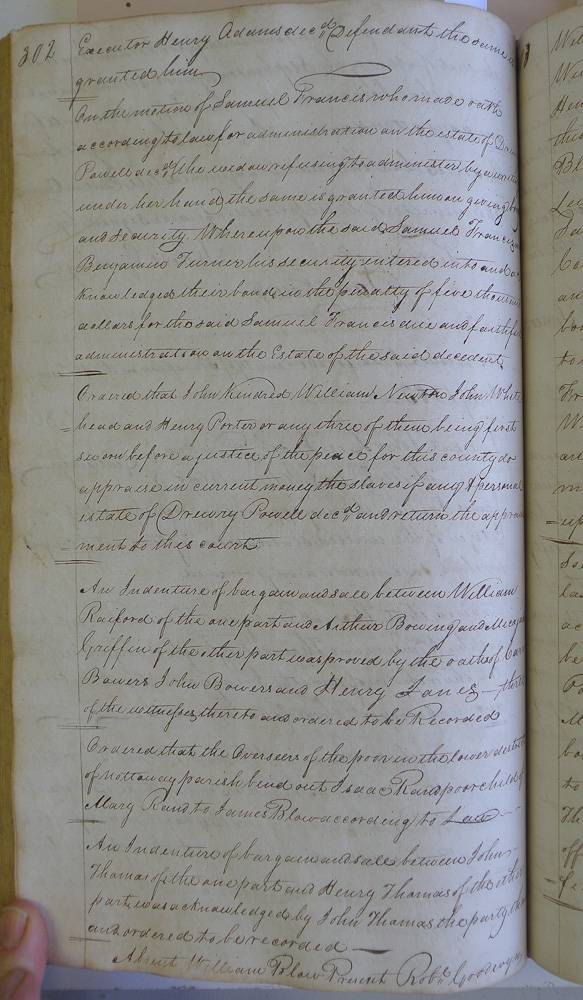 302
Executor Henry Adams dec.d Defendant the same is
granted him
On the motion of Samuel Francis who made oath
according to law for administration on the estate of
Powell dec.d (the widow refusing to administer by a
under her hand the same is granted him on giving
and security. Whereupon the said Samuel Francis
Benjamin Turner his security entered into and
knowledged their bond in the penalty of five
dollars for the said Samuel Francis due and
administration on the Estate of the said decedent
Ordered that John Kindred William John White
head and Henry Porter or any three of them being first
sworn before a justice of the peace for this county do
appraise in current money the slaves if any & personal
estate of Drewry Powell dec.d and return the
ment to this court
An Indenture of bargain and sale between William
Raiford of the one part and Arthur Bowing and
Griffin of the other part was proved by the oaths of
Bowers John Bowers and Henry Janes
of the witnesses thereto and ordered to be Recorded
Ordered that the Overseers of the poor in the lower
of Nottoway parish bind out Isaac Rand poor child of
Mary Rand to James Blow according to Law
An Indenture of bargain and sale between John
Thomas of the one part and Henry Thomas of the other
part was acknowledged by John Thomas the party
and ordered to be recorded
Absent William Blow Present Rob.t